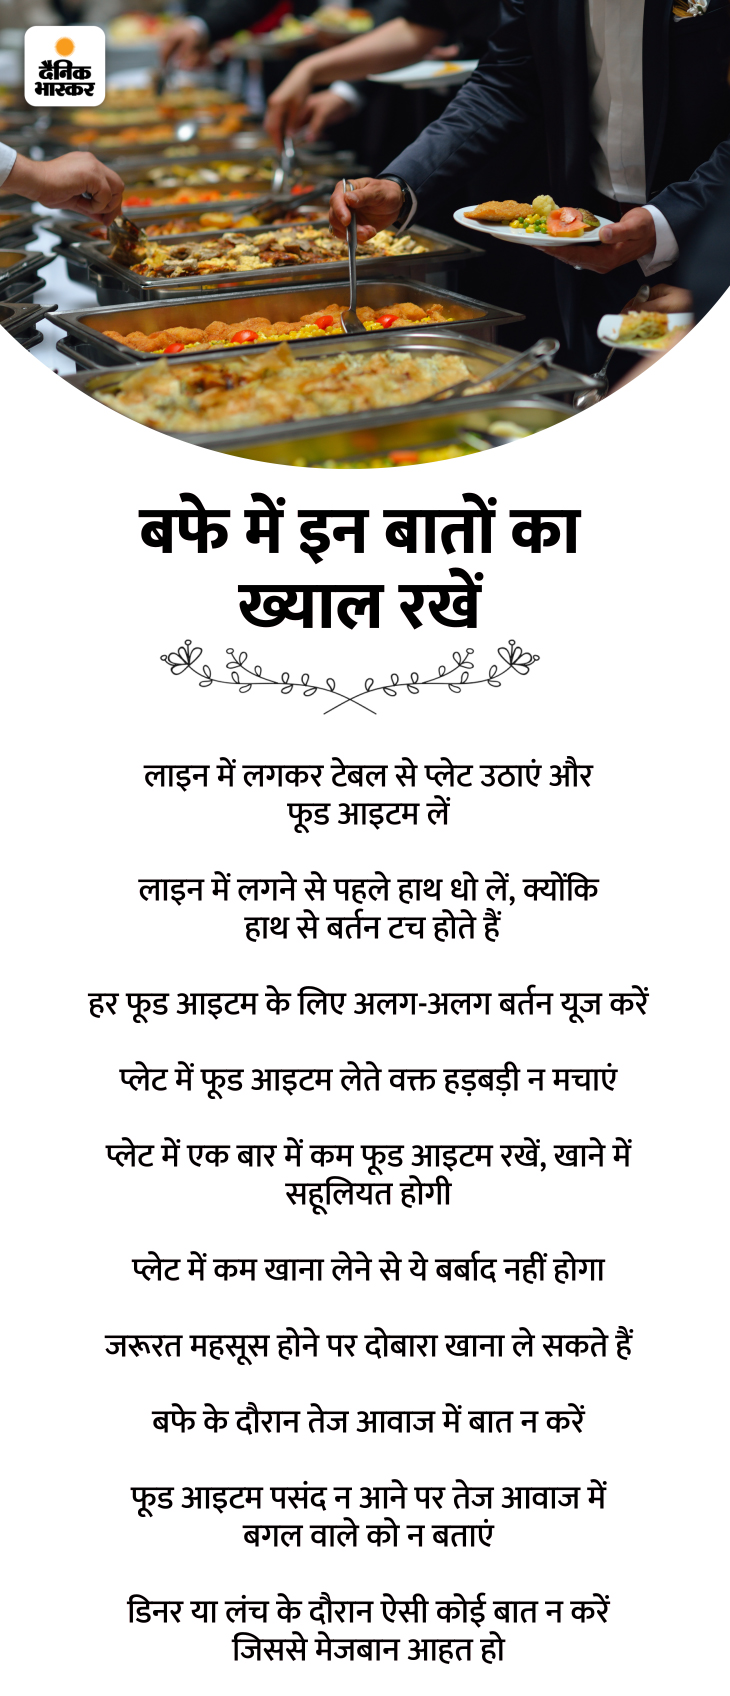 दैनिक
भास्कर
बफे में इन बातों का
ख्याल रखें
लाइन में लगकर टेबल से प्लेट उठाएं और
फूड आइटम लें
लाइन में लगने से पहले हाथ धो लें, क्योंकि
हाथ से बर्तन टच होते हैं
हर फूड आइटम के लिए अलग-अलग बर्तन यूज करें
प्लेट में फूड आइटम लेते वक्त हड़बड़ी न मचाएं
प्लेट में एक बार में कम फूड आइटम रखें, खाने में
सहूलियत होगी
प्लेट में कम खाना लेने से ये बर्बाद नहीं होगा
जरूरत महसूस होने पर दोबारा खाना ले सकते हैं
बफे के दौरान तेज आवाज में बात न करें
फूड आइटम पसंद न आने पर तेज आवाज में
बगल वाले को न बताएं
डिनर या लंच के दौरान ऐसी कोई बात न करें
जिससे मेजबान आहत हो